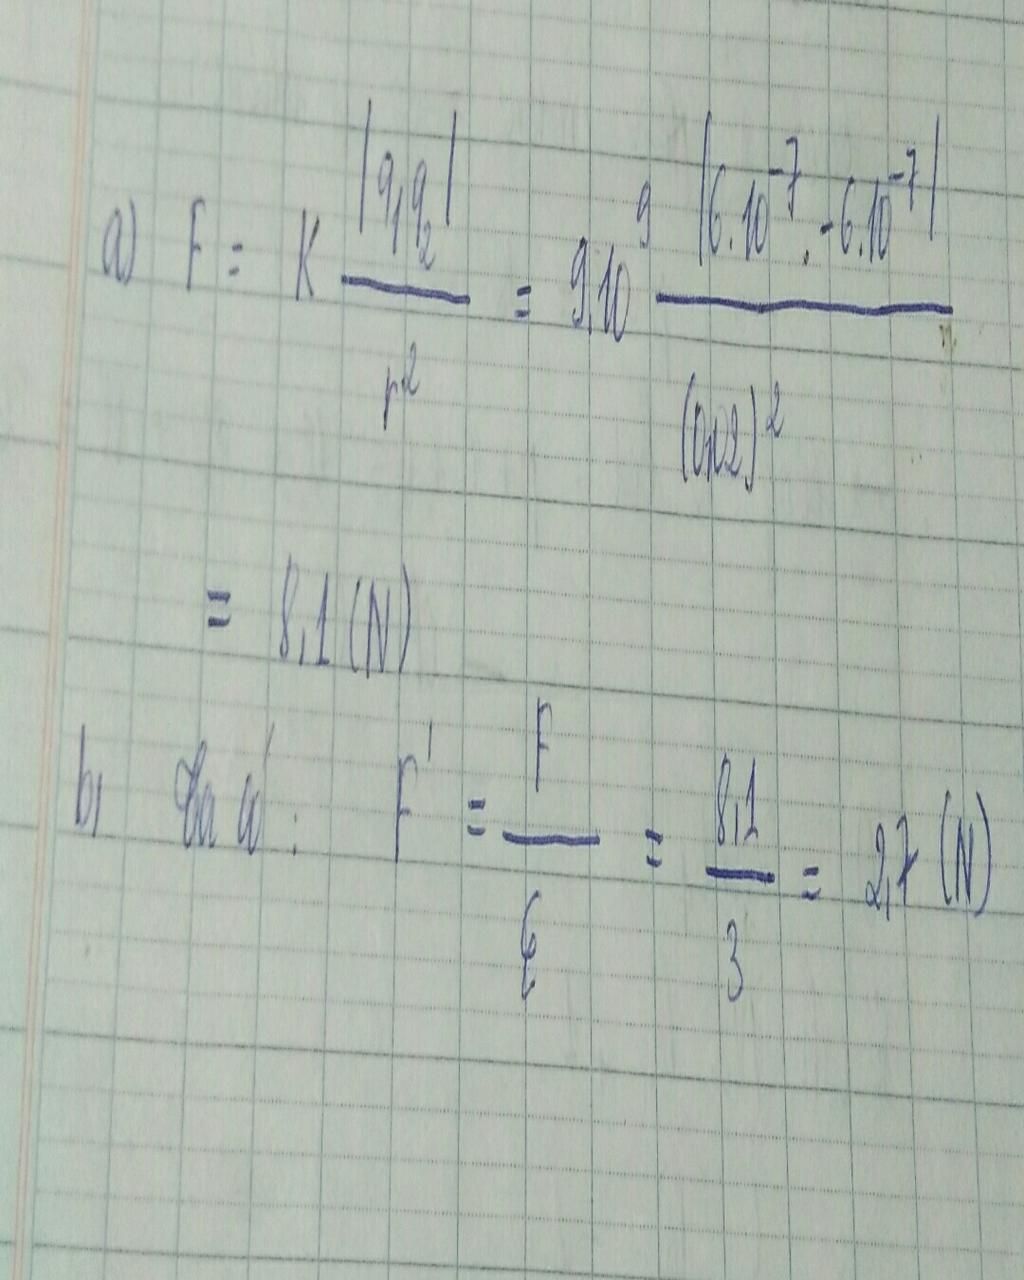 a) F = K |q₁q₂| / r² = 9.10⁹ |6.10⁻⁷ . -6.10⁻⁷| / (0,02)²
= 8,1 (N)
b, Ta có : F' = F / ε = 8,1 / 3 = 2,7 (N)